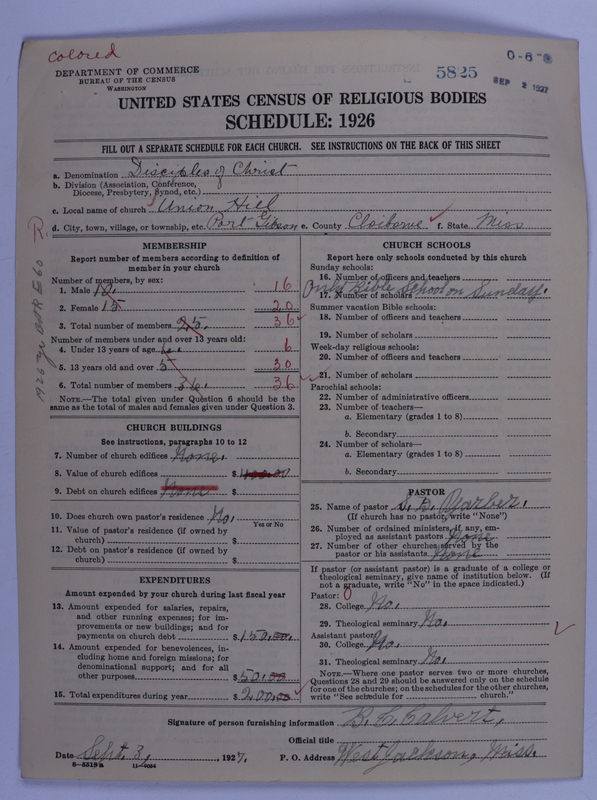 colored
5825
0-6-
SEP 2 1927
DEPARTMENT OF COMMERCE
BUREAU OF THE CENSUS
WASHINGTON
UNITED STATES CENSUS OF RELIGIOUS BODIES
SCHEDULE: 1926
FILL OUT A SEPARATE SCHEDULE FOR EACH CHURCH. SEE INSTRUCTIONS ON THE BACK OF THIS SHEET
a. Denomination Disciples of Christ
b. Division (Association, Conference,
Diocese, Presbytery, Synod, etc.)
c. Local name of church Union Hill
d. City, town, village, or township, etc. Port Gibson e. County Claiborne f. State Miss
R.
MEMBERSHIP
Report number of members according to definition of
member in your church
Number of members, by sex:
1. Male 10. 16
2. Female 15 20
3. Total number of members 25. 36
Number of members under and over 13 years old:
4. Under 13 years of age 6. 6
5. 13 years old and over 5 30
6. Total number of members 36. 36
NOTE.—The total given under Question 6 should be the
same as the total of males and females given under Question 3.
CHURCH BUILDINGS
See instructions, paragraphs 10 to 12
7. Number of church edifices None.
8. Value of church edifices $ 400.00
9. Debt on church edifices None $
10. Does church own pastor's residence? No.
Yes or No
11. Value of pastor's residence (if owned by
church) $
12. Debt on pastor's residence (if owned by
church) $
EXPENDITURES
Amount expended by your church during last fiscal year
13. Amount expended for salaries, repairs,
and other running expenses; for im-
provements or new buildings; and for
payments on church debt $ 150.00.
14. Amount expended for benevolences, in-
cluding home and foreign missions; for
denominational support; and for all
other purposes $ 50.00
15. Total expenditures during year $ 200.00
CHURCH SCHOOLS
Report here only schools conducted by this church
Sunday schools:
16. Number of officers and teachers
Only Bible School on Sunday.
17. Number of scholars
Summer vacation Bible schools:
18. Number of officers and teachers
19. Number of scholars
Week-day religious schools:
20. Number of officers and teachers
21. Number of scholars
Parochial schools:
22. Number of administrative officers
23. Number of teachers—
a. Elementary (grades 1 to 8)
b. Secondary
24. Number of scholars—
a. Elementary (grades 1 to 8)
b. Secondary
PASTOR
25. Name of pastor S. D. Yarber.
(If church has no pastor, write "None")
26. Number of ordained ministers, if any, em-
ployed as assistant pastors None
27. Number of other churches served by the
pastor or his assistants None
If pastor (or assistant pastor) is a graduate of a college or
theological seminary, give name of institution below. (If
not a graduate, write "No" in the space indicated.)
Pastor: 0
28. College No.
29. Theological seminary No.
Assistant pastor:
30. College No.
31. Theological seminary No.
NOTE.—Where one pastor serves two or more churches,
Questions 28 and 29 should be answered only on the schedule
for one of the churches; on the schedules for the other churches,
write "See schedule for church."
Signature of person furnishing information B. C. Calvert,
Official title
Date Sept. 3, 1927. P. O. Address West Jackson, Miss.
8—5518a 11—9054